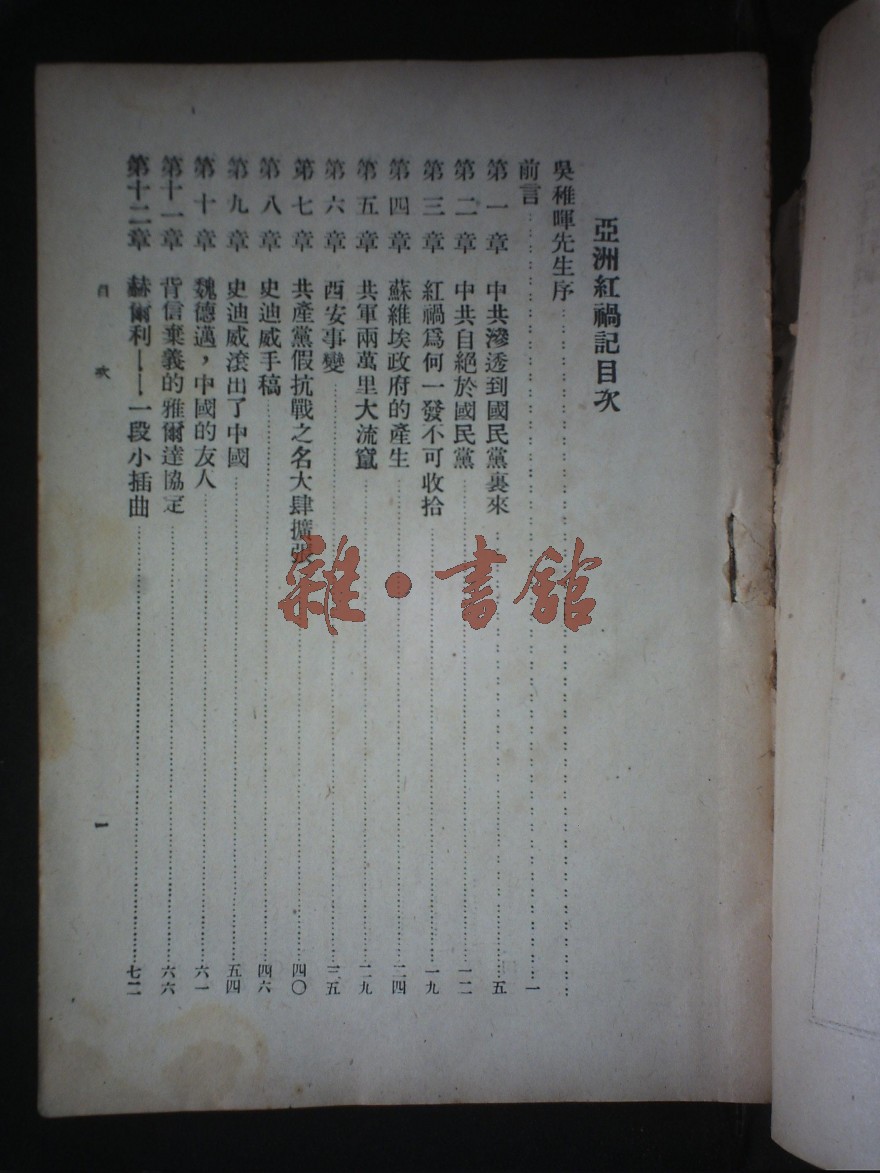 亞洲紅禍記目次
吳稚暉先生序
前言 一
第一章 中共滲透到國民黨裏來 五
第二章 中共自絕於國民黨 一二
第三章 紅禍爲何一發不可收拾 一九
第四章 蘇維埃政府的產生 二四
第五章 共軍兩萬里大流竄 二九
第六章 西安事變 三五
第七章 共產黨假抗戰之名大肆擴張 四〇
第八章 史迪威手稿 四六
第九章 史迪威滾出了中國 五四
第十章 魏德邁，中國的友人 六一
第十一章 背信棄義的雅爾達協定 六六
第十二章 赫爾利——一段小插曲 七二
目次 一
雜·書館